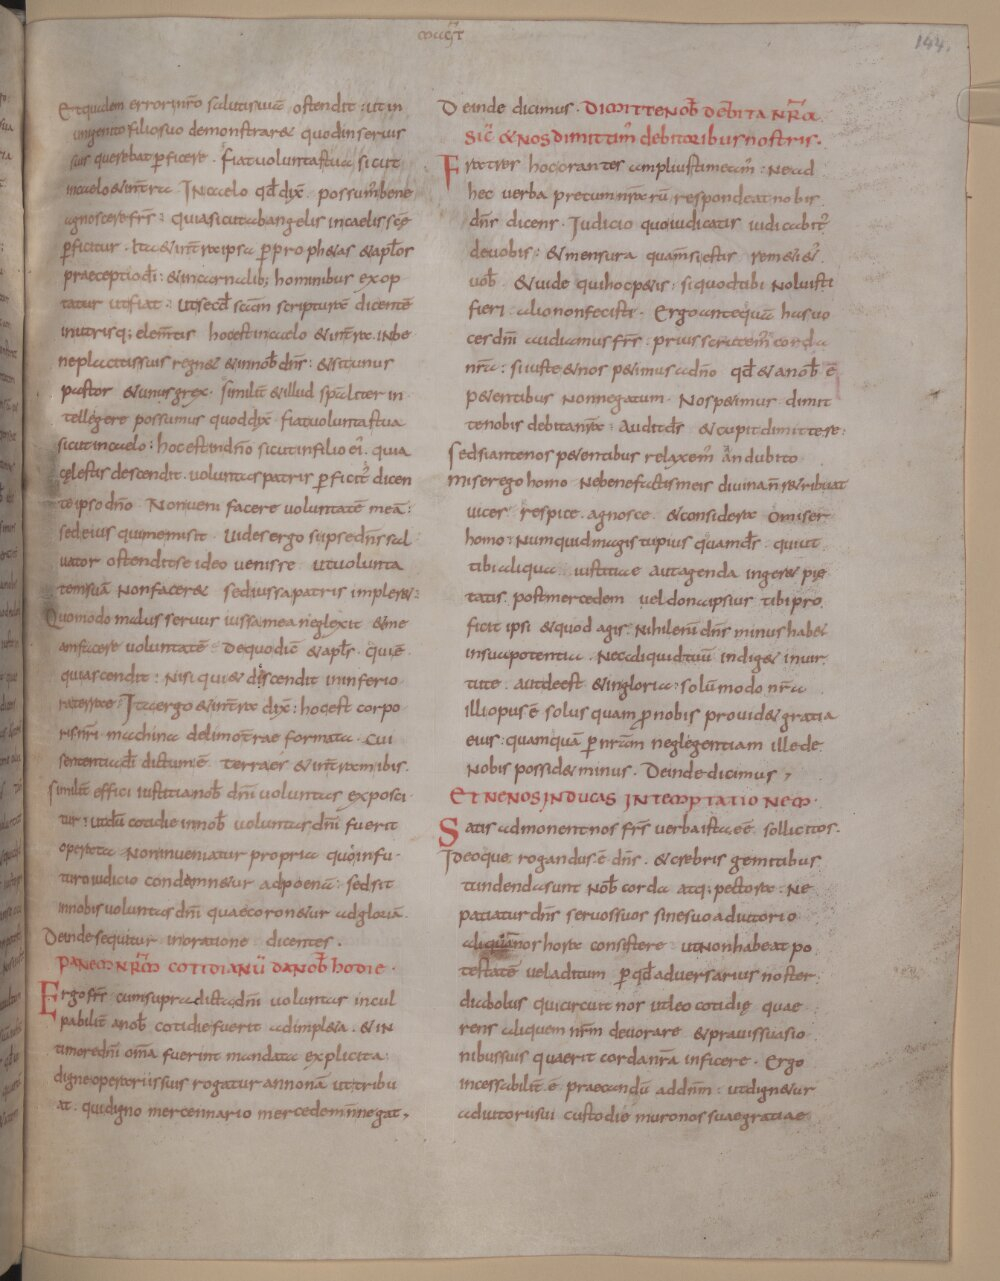 144.
Et quidem error in nr̄o salutis uiuae ostendit : ut in
unigenito filio suo demonstraret quod in seruis
suis querebat ꝑficere . Fiat uoluntas tua sicut
in caelo & in tr̄a In caelo qd̄ dix̄ . possum᷒ bene
agnoscere fr̄s : quia sicut ab angelis in caelis s̄c̄ę
ꝑficitur . Ita & in tr̄a ipsa ꝑ prophetas & aplōs
praeceptio d̄i : & in carnalib; hominibus exop
tatur ut fiat : ut secd̄ scām scripturē dicentē
in utrisq; elem̄tis hoc est in caelo & in tr̄a . in be
neplacitis suis regnet & in nob̄ dn̄s : & sit unus
pastor & unus grex . Similit̄ & illud sp̄aliter in
tellegere possumus quod dix̄ . fiat uoluntas tua
sicut in caelo : hoc est in dn̄o sicut in filio ei᷒ . quia
cęlestis descendit . uoluntas patris ꝑficit᷒ dicen
te ipso dn̄o Non ueni facere uoluntatē meā :
sed eius qui me misit . Uides ergo si ipse dn̄s sal
uator ostendit se ideo uenisse ut uolunta
tem suā non faceret sed iussa patris impleret :
Quomodo malus seruus iussa mea neglexit & me
am facere uoluntatē De quo diē & apl̄s . qui ē
quia scendit : nisi qui & discendit in inferio
ra terrae : Ita ergo & in tr̄a dix̄ : hoc est corpo
ris nr̄i machina de limo tr̄rae formata . Cui
sententia d̄i dictum ē terra es & in tr̄am ibis .
Similit̄ effici iustitia nob̄ dn̄i uoluntas exposci
tur : ut dū cotidie in nob̄ uoluntas dn̄i fuerit
operata Non inueniatur propria quo in fu
turo iudicio condemnetur ad poenā : sed sit
in nobis uoluntas dn̄i quae coronetur ad gloriā .
Deinde sequitur in oratione dicentes .
PANEM NR̄M COTIDIANŪ DA NOB̄ HODIE .
Ergo fr̄s cum supra dicta dn̄i uoluntas incul
pabilit̄ a nob̄ cotidie fuerit adimpleta . & in
timore dn̄i om̄a fuerint mandata explicita :
digne operariis suis rogatur annonā ut tribu
at . qui digno mercennario mercedem n̄ negat ,
Deinde dicimus . DIMITTE NOB̄ DEBITA NR̄A
SIC̄ & NOS DIMITTIM᷒ DEBITORIBUS NOSTRIS .
Fratres hoc orantes amplius timeam᷒ : ne ad
hec uerba precum nr̄arū respondeat nobis
dn̄s dicens . Iudicio quo iudicatis iudicabit᷒
de uobis : & mensura qua m̄si estis remetiet᷒
uob̄ . & uide qui hoc petis : si quod tibi noluisti
fieri . alio non fecisti . Ergo antequā has uo
ces dn̄i audiamus fr̄s : prius scrutem᷒ corda
nr̄a : si iuste & nos petimus a dn̄o qd̄ & a nob̄ ē
petentibus non negatum . Nos petimus dimit
te nobis debita nr̄a : Audit d̄s & cupit dimittere :
Sed si antenos petentibus relaxem᷒ an dubito
miser ego homo Ne benefactis meis diuina n̄ retribuat
uices respice . agnosce & considera o miser
homo : Numquid magis tu pius quam d̄s . qui ut
tibi aliqua iustitiae aut agenda ingeret pie
tatis . post mercedem uel dona ipsius tibi pro
ficit ipsi & quod agis . Nihil eni᷒ dn̄s minus habet
in sua potentia . Nec aliquid tuū indiget in uir
tute . aut deest & in gloria : solū modo nr̄a
illi opus ē solus quam p̄ nobis prouidet gratia
eius : quamquā ꝑ nr̄am neglegentiam ille de
nobis possidet minus . Deinde dicimus ,
ET NE NOS INDUCAS IN TEMPTATIONEM .
Satis admonent nos fr̄s uerba ista eē sollicitos .
Ideoque rogandus ē dn̄s . & crebris gemitibus
tundenda sunt nob̄ corda atq; pectora : Ne
patiatur dn̄s seruos suos sine suo adiutorio
aliquā nos hora consistere ut non habeat po
testatē uel aditum ꝑ qd̄ aduersarius noster
diabolus qui circuit nos ut leo cotidię quae
rens aliquem nr̄m deuorare & prauis suasio
nibus suis quaerit corda nr̄a inficere . Ergo
incessabilit̄ ē praecandū ad dn̄m : ut dignetur
adiutor sui custodie muro nos suae gratiae